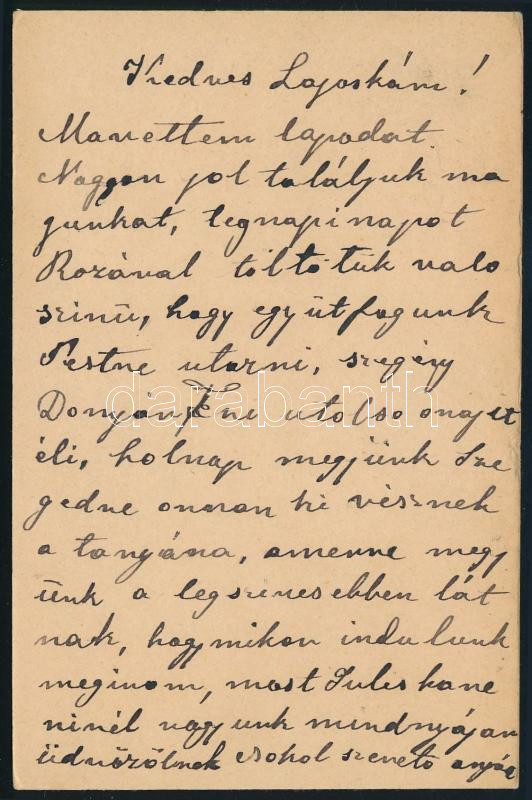 Kedves Lajoskám!
Ma vettem lapodat.
Nagyon jol találjuk ma
gunkat, tegnapi napot
Rozával töltötük valo
szinü, hogy együt fogunk
Pestre utazni, szegény
Donján F ni utolso oráját
éli, holnap megjünk Sze
gedre onnan ki visznek
a tanyára, amerre megy
ünk a legszivesebben lát
nak, hogy mikor indulunk
megirom, most Juliskane
ninél vagyunk mindnyájan
üdvözölnek csokol szerető anyád
darabanth